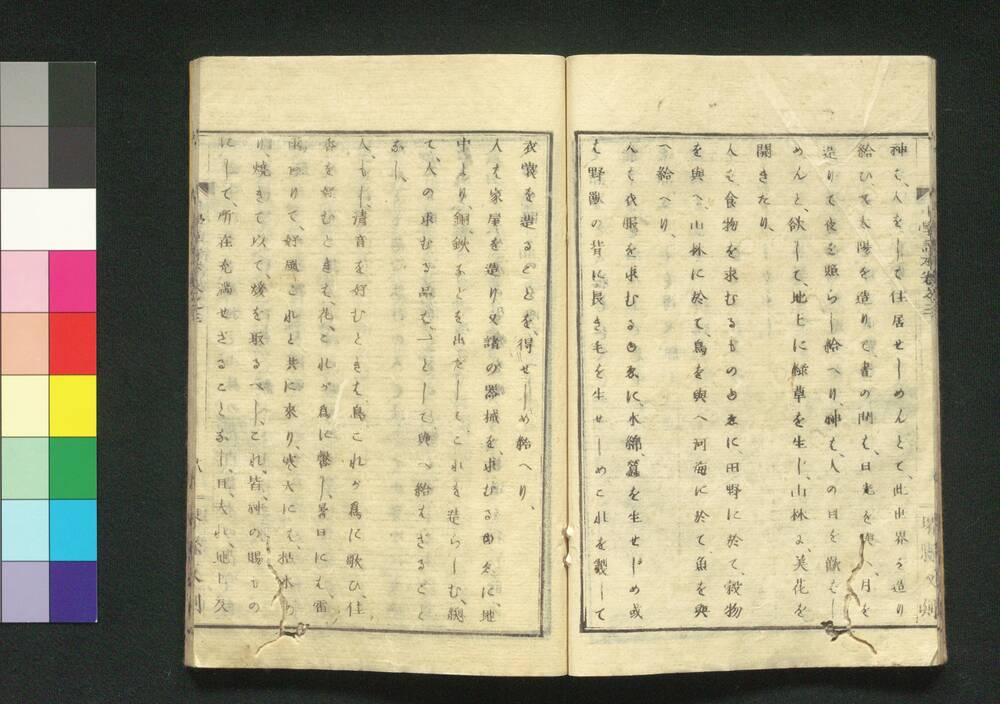 神も、人をして住居せしめんとて、此世界を造り
給ひて、太陽を造りて、昼の間も、日光を與へ、月を
造りて夜を照らし給へり、神も、人の目を歓ばし
めんと、欲して、地上に緑草を生し、山林に、美花を
開きたり、
人も食物を求むるものゆゑに、田野に於て、穀物
を與へ、山林に於て、鳥を與へ河海に於て魚を與
へ給へり、
人も衣服を求むるゆゑに、木綿、蠶を生せしめ或
も野獣の背に長き毛を生せしめこれを製して
衣裳を造ることを、得せしめ給へり、
人も家屋を造り又諸の器械を、求むるゆゑに、地
中より、銅鉄などを出だして、これを造らしむ、
て、人の求むる品も、一として、與へ給もざること
なし、
人、もし、清音を好むときも、鳥これが為に歌ひ、佳
香を好むときも、花、これが為に馨し、暑日にも、雷
雨ありて、好風これと共に來り、寒天にも、枯木
り、焼きて以て、煖を取るべし、これ、皆、神の賜もの
にして、所在充満せざることなし、日、